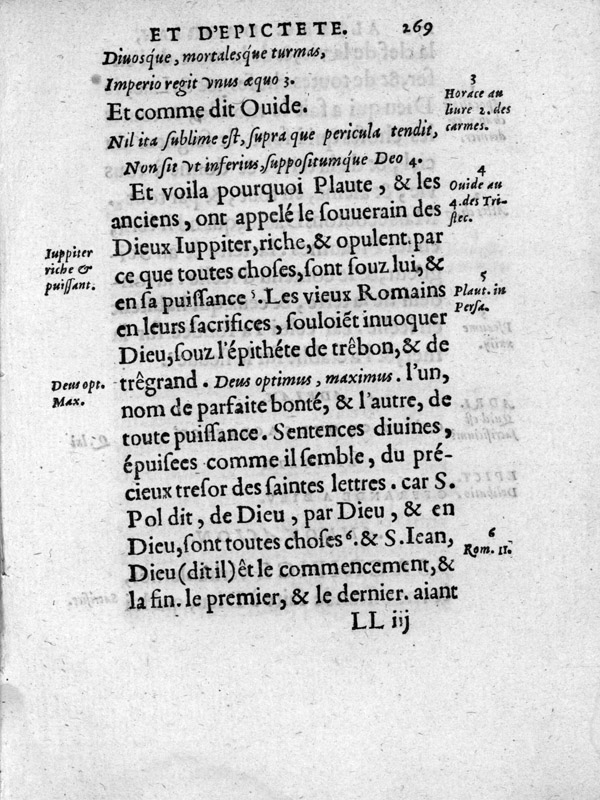 ET D'EPICTETE. 269
Diuosque, mortalesque turmas,
Imperio regit vnus æquo 3.
3
Horace au
liure 2. des
carmes.
Et comme dit Ouide.
Nil ita sublime est, supra que pericula tendit,
Non sit vt inferius, suppositumque Deo 4.
4
Ouide au
4. des Tri-
stec.
Et voila pourquoi Plaute, & les
anciens, ont appelé le souuerain des
Dieux Iuppiter, riche, & opulent par
Iuppiter
riche &
puissant.
ce que toutes choses, sont souz lui, &
en sa puissance 5. Les vieux Romains
5
Plaut. in
Persa.
en leurs sacrifices, souloiẽt inuoquer
Dieu, souz l'épithéte de trêbon, & de
trêgrand. Deus optimus, maximus. l'un,
Deus opt.
Max.
nom de parfaite bonté, & l'autre, de
toute puissance. Sentences diuines,
épuisees comme il semble, du pré-
cieux tresor des saintes lettres. car S.
Pol dit, de Dieu, par Dieu, & en
Dieu, sont toutes choses 6. & S. Iean,
6
Rom. 11.
Dieu (dit il) êt le commencement, &
la fin. le premier, & le dernier. aiant
LL iij